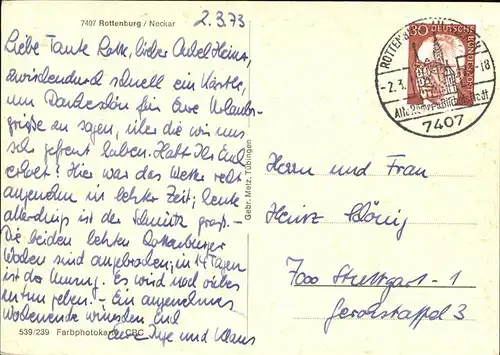 7407 Rottenburg / Neckar
2.3.73
Liebe Tante Lotte, lieber Onkel Heinz,
zwischendurch schnell ein Kärtle,
um Dankeschön für Eure Urlaubs-
grüße zu sagen, über die wir uns
sehr gefreut haben. Habt Ihr Euch
erholt? Hier war das Wetter recht
angenehm in letzter Zeit; heute
allerdings ist der Schmutz groß. -
Die beiden letzten Rottenburger
Wochen sind angebrochen; in 14 Tagen
ist der Umzug. Es wird noch vieles
geben. - Ein angenehmes
Wochenende wünschen Euch
Eure Inge und Klaus
539/239 Farbphotokarte CBC
Gebr. Metz, Tübingen
30 DEUTSCHE BUNDESPOST
ROTTENBURG
-2.3. -18
Alte Römer- u. Bischofsstadt
7407
Herrn und Frau
Heinz König
7000 Stuttgart-1
3